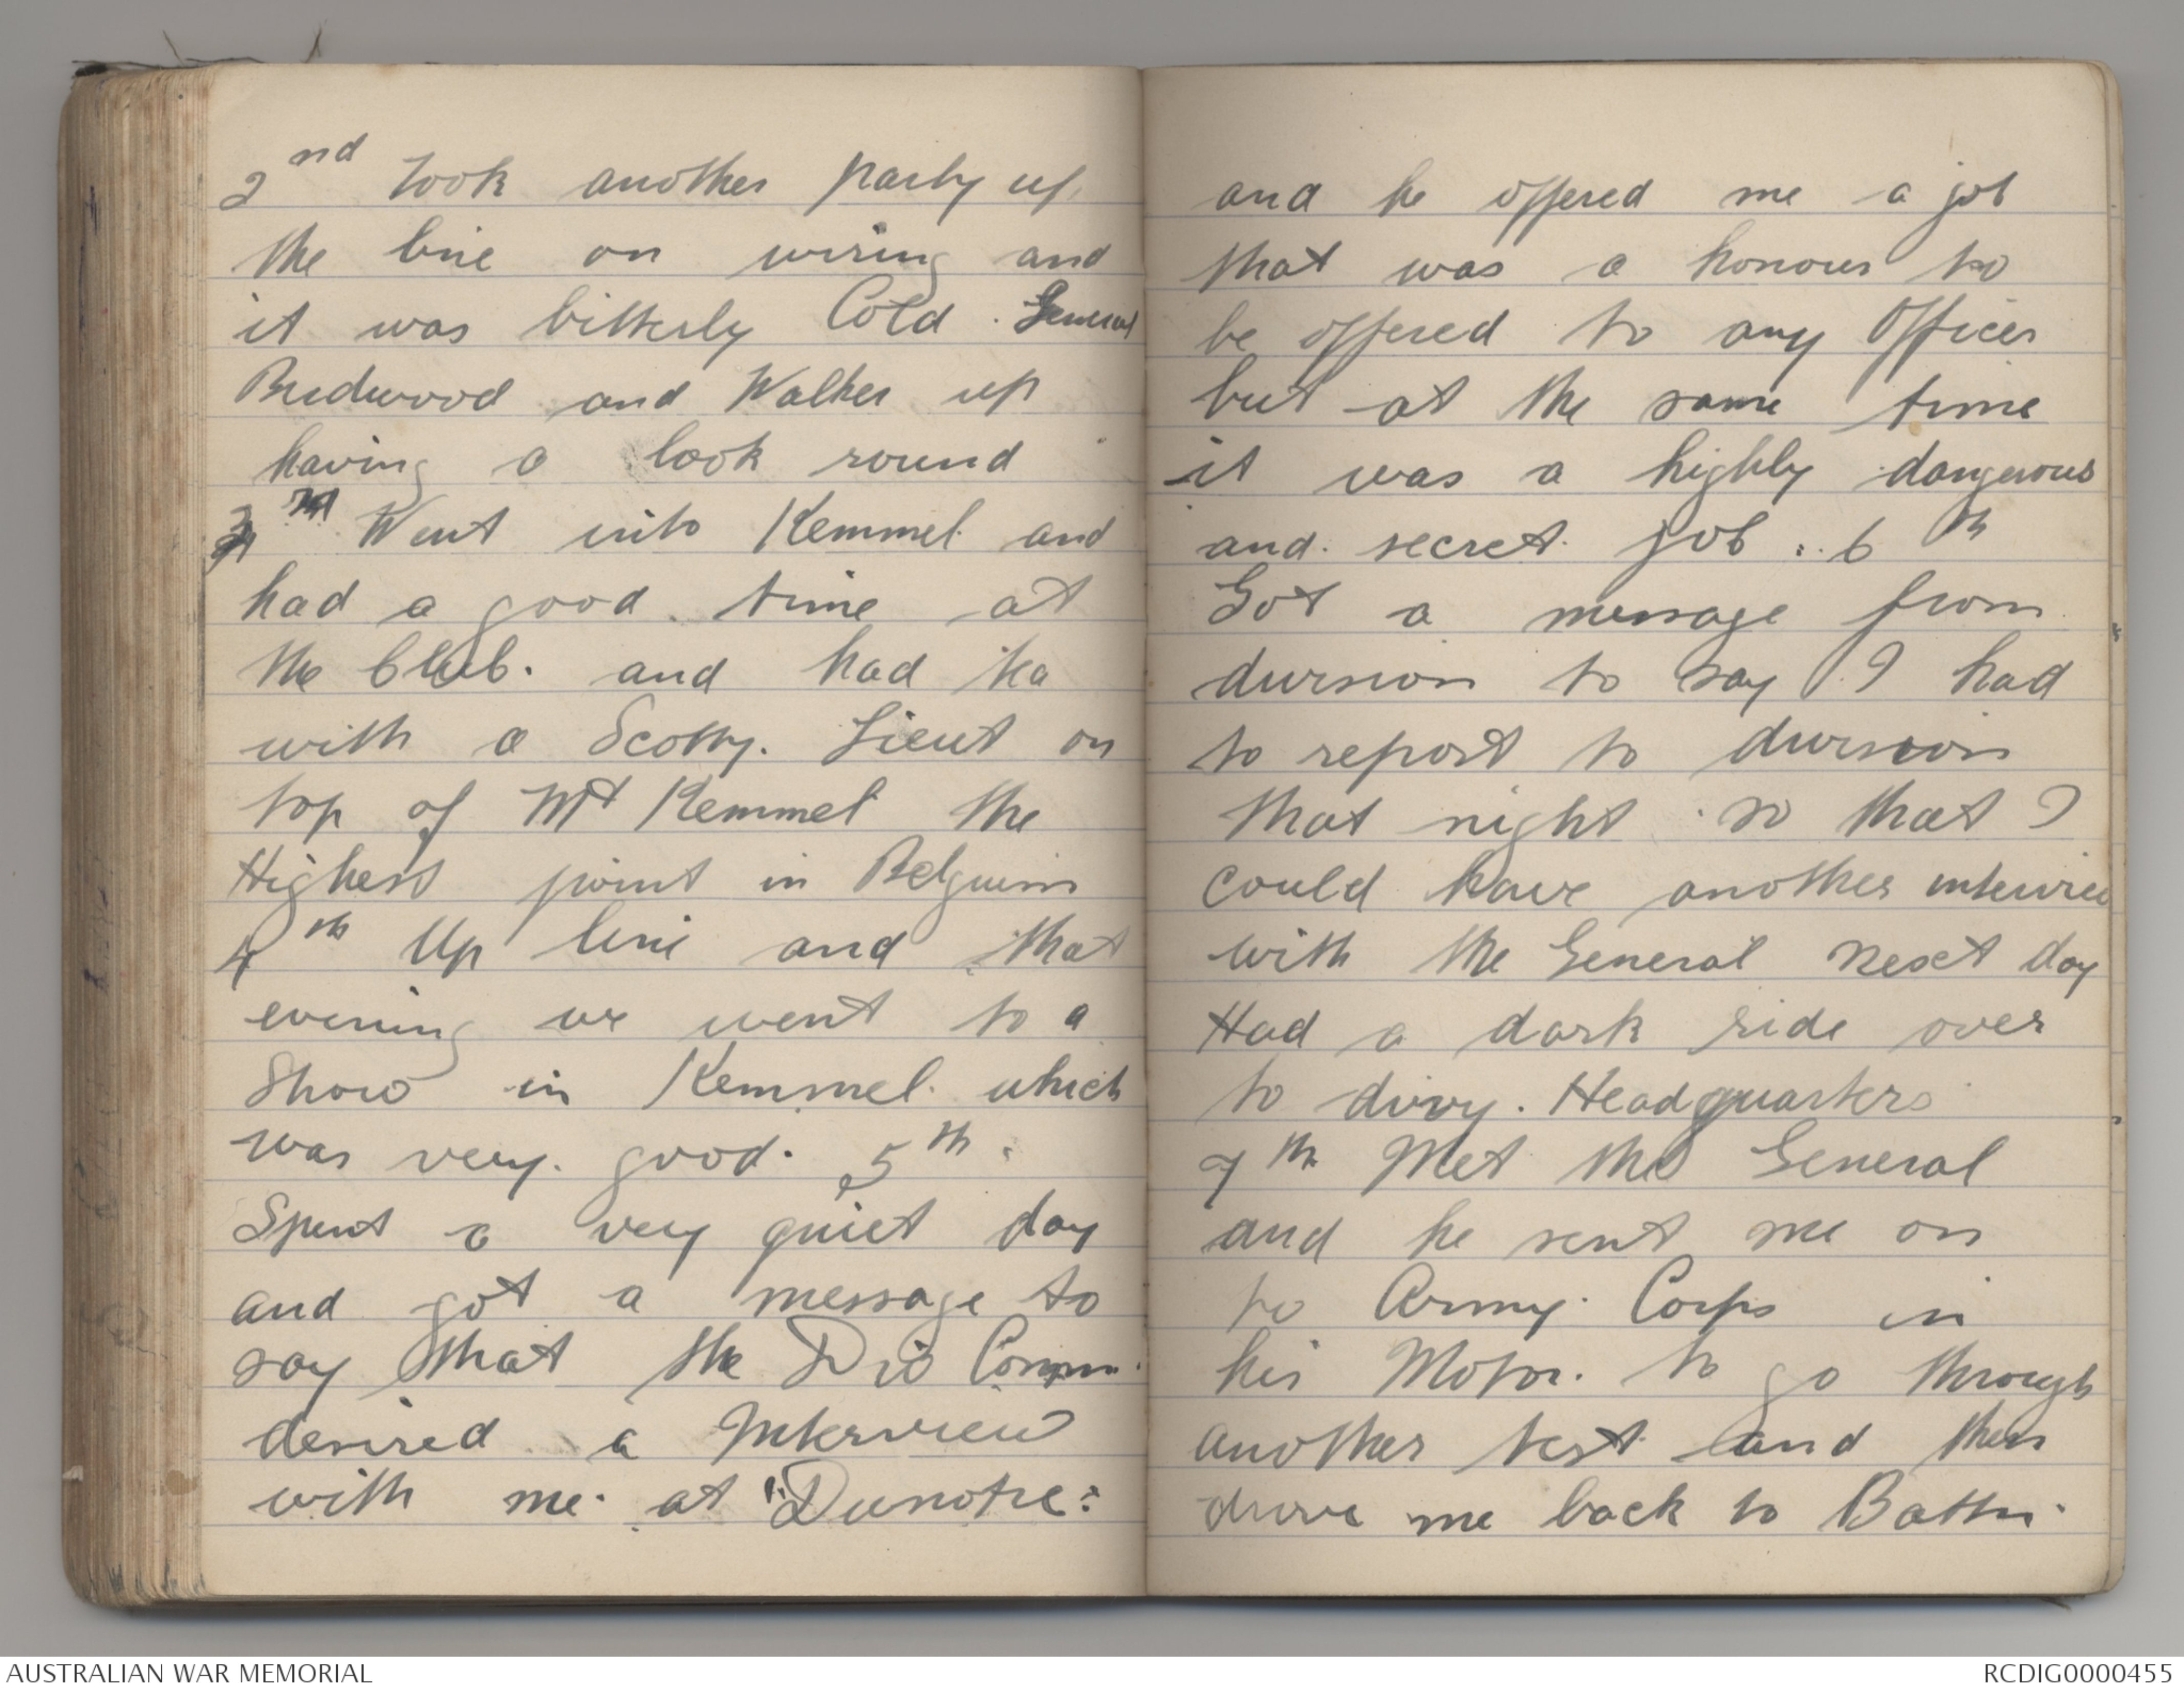 2nd took another party up
the line on wiring and
it was bitterly Cold. General
Birdwood and Walker up
having a look round
3rd Went into Kemmel and
had a good time at
the Club. and had tea
with a Scotty. Lieut on
top of Mt Kemmel the
Highest point in Belguim
4th Up line and that
evening we went to a
Show in Kemmel. which
was very. good. 5th.
Spent a very quiet day
and got a message to
say that the Div Comm.
desired a Interview
with me at
and he offered me a job
that was a honour to
be offered to any Officer
but at the same time
it was a highly dangerous
and secret job. 6th
Got a message from
division to say I had
to report to division
that night so that I
could have another interview
with the General next day
Had a dark ride over
to divvy. Headquarters
7th Met the General
and he sent me on
to Army Corps in
his Motor. to go through
another test and then
drove me back to Battn.
AUSTRALIAN WAR MEMORIAL
RCDIG0000455